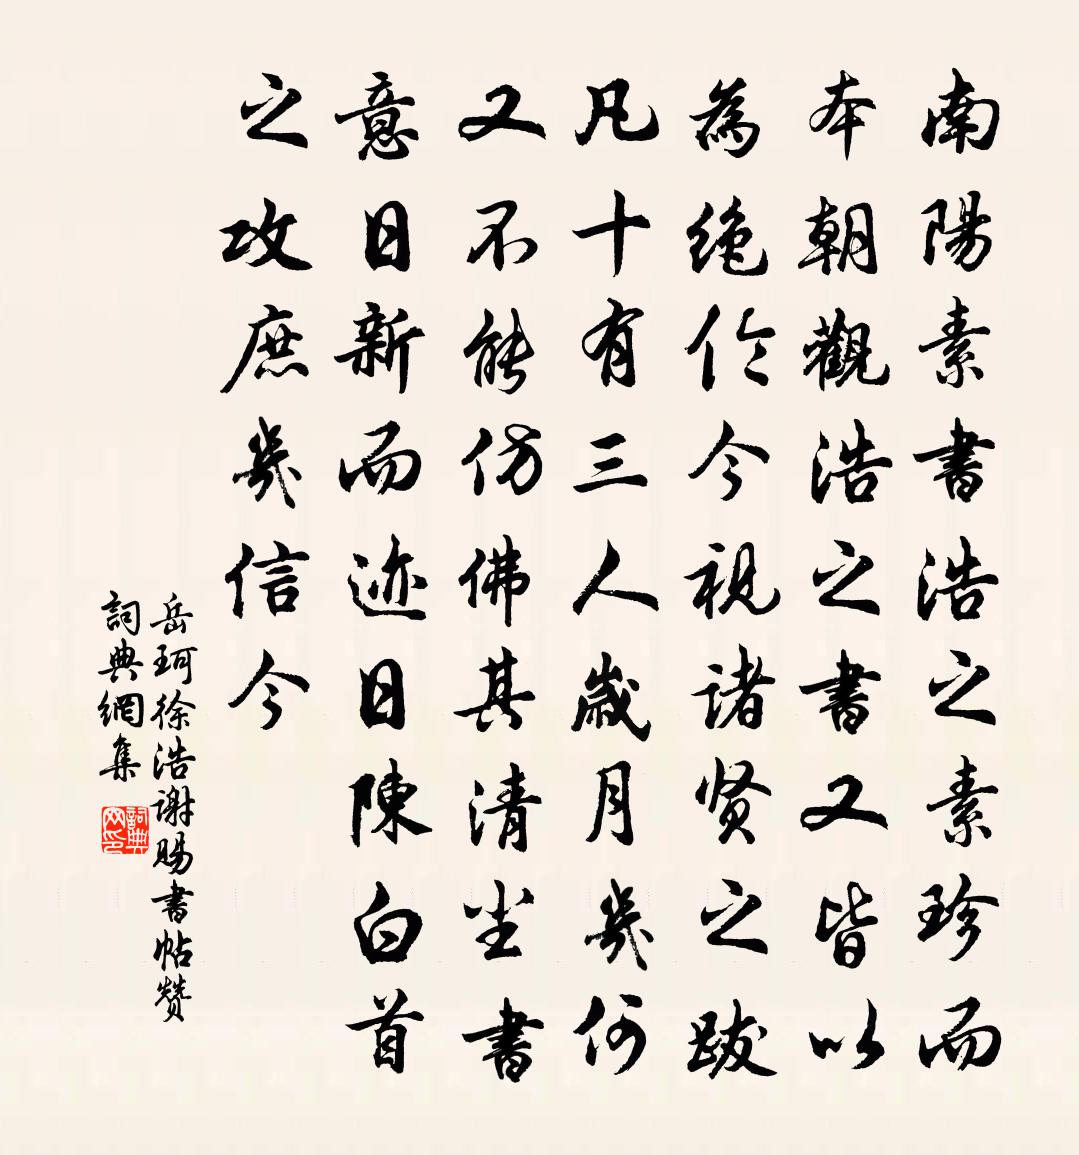 南陽素書浩之素珍而
本朝觀浩之書又皆以
為絶伦今視諸贤之跋
凡十有三人歲月幾何
又不能仿佛其清尘書
意日新而迹日陳白首
之攻庶幾信今
岳珂徐浩謝賜書帖赞
詞典網集
詞典網印